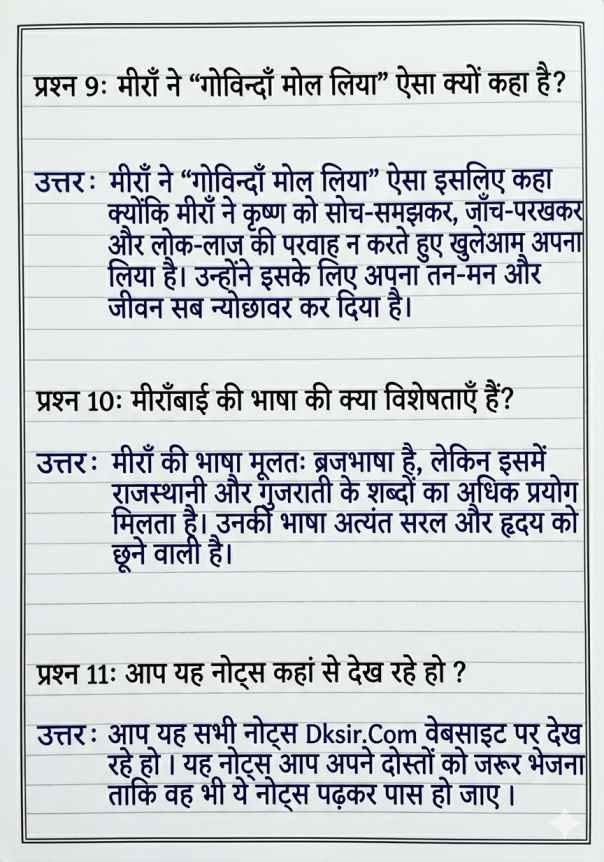 प्रश्न 9: मीराँ ने “गोविन्दाँ मोल लिया” ऐसा क्यों कहा है?
उत्तर : मीराँ ने “गोविन्दाँ मोल लिया” ऐसा इसलिए कहा
क्योंकि मीराँ ने कृष्ण को सोच-समझकर, जाँच-परखकर
और लोक-लाज की परवाह न करते हुए खुलेआम अपना
लिया है। उन्होंने इसके लिए अपना तन-मन और
जीवन सब न्योछावर कर दिया है।
प्रश्न 10: मीराँबाई की भाषा की क्या विशेषताएँ हैं?
उत्तर : मीराँ की भाषा मूलतः ब्रजभाषा है, लेकिन इसमें
राजस्थानी और गुजराती के शब्दों का अधिक प्रयोग
मिलता है। उनकी भाषा अत्यंत सरल और हृदय को
छूने वाली है।
प्रश्न 11: आप यह नोट्स कहां से देख रहे हो ?
उत्तर : आप यह सभी नोट्स Dksir.Com वेबसाइट पर देख
रहे हो । यह नोट्स आप अपने दोस्तों को जरूर भेजना
ताकि वह भी ये नोट्स पढ़कर पास हो जाए ।